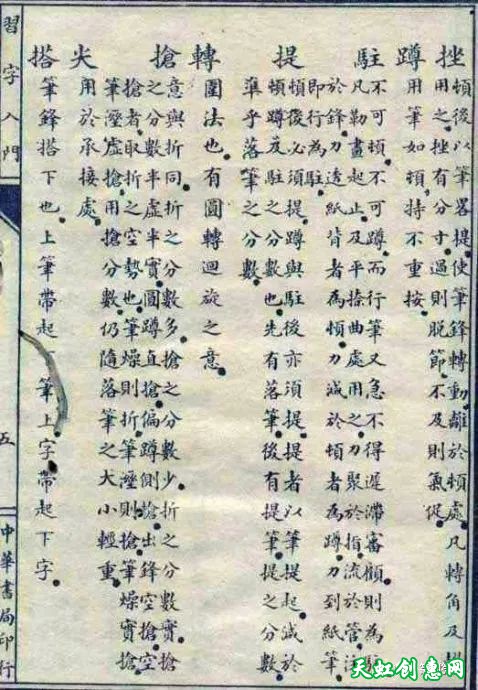 挫
頓後以筆畧提使筆鋒轉動離於頓處凡轉角及
用之挫有分寸過則脫節不及則氣促
蹲
用筆如頓特不重按
駐
不可頓不可蹲而行筆又急不得遲滯審顧則為駐
凡勒畫起止及平捺曲處用之力聚於指流於管注
於鋒力透紙背者為頓力減於頓者為蹲力到紙筆
即行為駐
提
頓後必須提蹲與駐後亦須提提者以筆提起減於
頓蹲及駐之分數也先有落筆後有提筆提之分數
準乎落筆之分數
轉
圍法也有圓轉迴旋之意
搶
意與折同折之分數多搶之分數少折之分數實搶
之分數半虛半實圓蹲直搶偏蹲側搶出鋒空搶空
搶者取折之空勢也筆燥則折筆溼則搶筆燥實搶
筆溼虛搶用搶分數仍隨落筆之大小輕重
尖
用於承接處
搭
筆鋒搭下也上筆帶起 筆上字帶起下字
習字入門
五
中華書局印行
天虹创意网